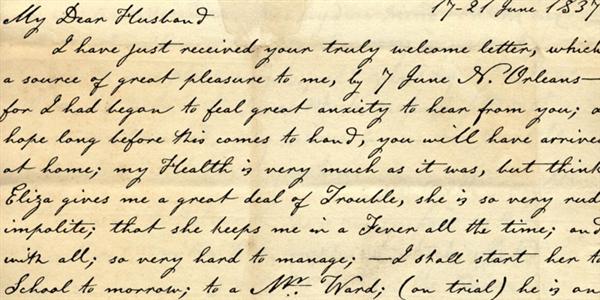 17-21 June 1837
My Dear Husband
I have just received your truly welcome letter, which
a source of great pleasure to me, by 7 June N. Orleans—
for I had began to feal great anxiety to hear from you; a
hope long before this comes to hand, you will have arrived
at home; my Health is very much as it was, but think
Eliza gives me a great deal of Trouble, she is so very rud
impolite; that she keeps me in a Fever all the time; and
with all; so very hard to manage; —I shall start her to
School to morrow; to a Mr. Ward; (on trial) he is an